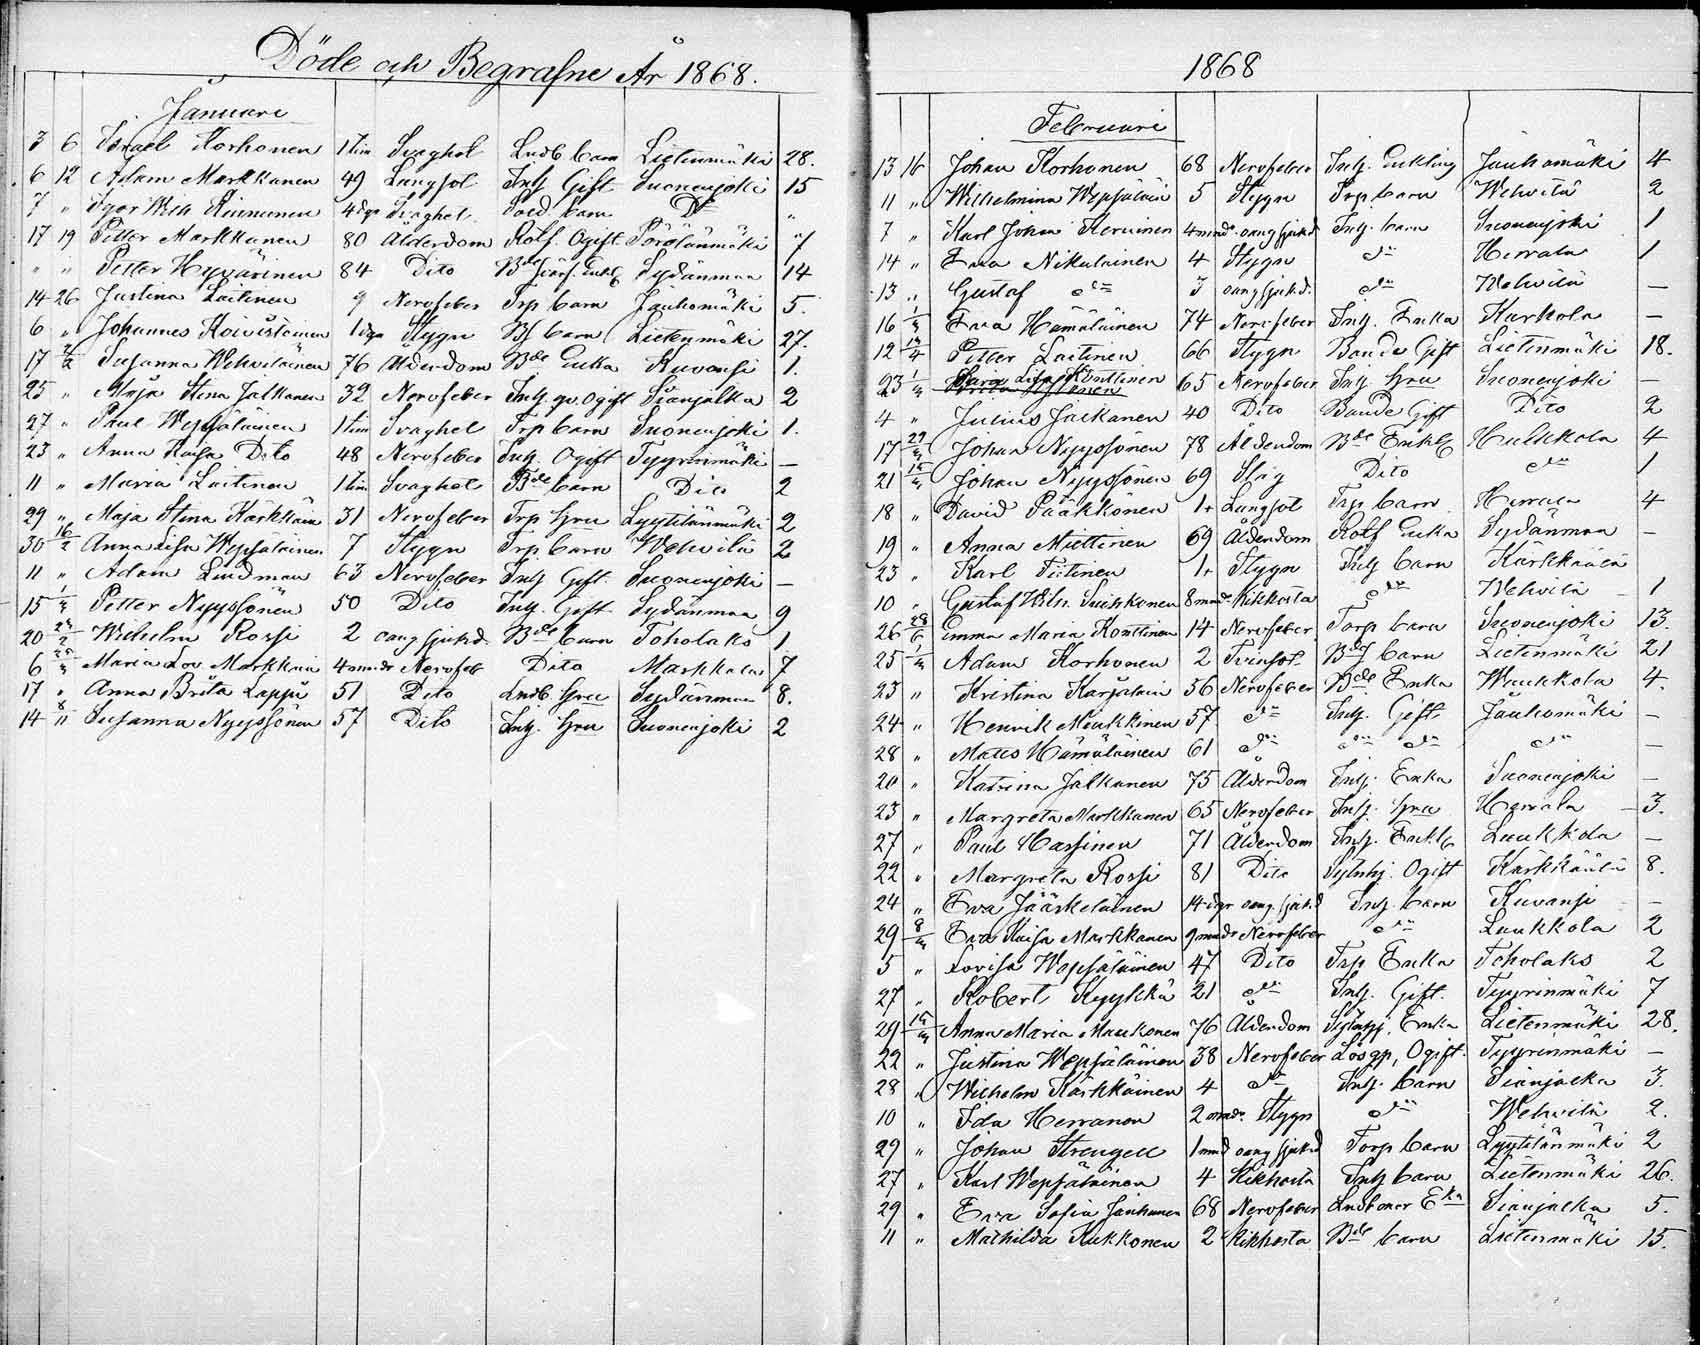 Döde och Begrafne År 1868.
Januari
3 6 Israel Korhonen 1 tim Svaghet Lndb barn Lietenmäki 28.
6 12 Adam Markkanen 49 Lungsot Inh Gift Suonenjoki 15
7 " Igor Wilh Kinnunen 4 dgr Svaghet Sold barn Do "
17 19 Petter Markkanen 80 Ålderdom Rotf. Ogift Pörölänmäki 7
" " Petter Hyvärinen 84 Dito Sydänmaa 14
14 26 Justina Laitinen 9 Nervfeber Trp barn Jauhomäki 5.
6 " Johannes Koivistoinen 1 dgr Stygn Bf barn Lietenmäki 27.
17 2/2 Susanna Wehviläinen 76 Ålderdom Bde Enka Kuvansi 1.
25 " Maja Stina Jalkanen 32 Nervfeber Inh. qv. Ogift Sianjalka 2
27 " Paul Wepsäläinen 1 tim Svaghet Trp barn Suonenjoki 1.
23 " Anna Kaisa Dito 48 Nervfeber Inh. Ogift Tyyrinmäki —
11 " Maria Laitinen 1 tim Svaghet Bde barn Dito 2
29 " Maja Stina Kärkkäin 31 Nervfeber Trp hru Lyytilänmäki 2
30 16/2 Anna Lisa Wepsäläinen 7 Stygn Trp barn Wehvilä 2
11 " Adam Lindman 63 Nervfeber Inh Gift Suonenjoki —
15 1/3 Petter Nyyssönen 50 Dito Inh. Gift Sydänmaa 9
20 Wilhelm Rossi 2 oang sjukd. Bde barn Toholaks 1
6 Maria Lov. Markkain 4 mndr Nervfeb Dito Markkala 7
17 " Anna Brita Lappi 51 Dito Lndb. hru Sydänmaa 8.
14 8/11 Susanna Nyyssönen 57 Dito Inh. hru Suonenjoki 2
1868
Februari
13 16 Johan Korhonen 68 Nervfeber Inh. Enkling Jauhomäki 4
11 " Wilhelmina Wepsäläin 5 Stygn Trp. barn Wehvilä 2
7 " Karl Johan Kerninen 4 mndr oang sjukd Inh. barn Suonenjoki 1
14 " Eva Nikulainen 4 Stygn do Herrala 1
13 " Gustaf do 3 oang sjukd. do Wehvilä —
16 1/3 Eva Hämäläinen 74 Nervfeber Inh. Enka Karkola —
12 Petter Laitinen 66 Stygn Bonde Gift Lietenmäki 18.
23 1/3 Maria Lisa Konttinen 65 Nervfeber Inh hru Suonenjoki —
4 " Julius Jalkanen 40 Dito Bonde Gift Dito 2
17 Johan Nyyssönen 78 Ålderdom Bde Enkl Hulkkola 4
21 15/3 Johan Nyyssönen 69 Slag Dito do 1
18 " David Pääkkönen 1 Lungsot Trp barn Herrala 4
19 " Anna Miettinen 69 Ålderdom Rotf Enka Sydänmaa —
23 " Karl Tiitinen 1 Stygn Inh barn Kärkkäälä
10 " Gustaf Wilh. Suihkonen 8 mndr Kikhosta do Wehvilä 1
26 Emma Maria Konttinen 14 Nervfeber Torp barn Suonenjoki 13.
25 1/3 Adam Korhonen 2 Tvinsot Bdf barn Lietenmäki 21
23 " Kristina Karjalain 56 Nervfeber Bde Enka Waukkola 4.
24 " Henrik Miukkinen 57 do Inh. Gift Jauhomäki —
28 " Matts Hämäläinen 61 do do do do —
20 " Katrina Jalkanen 75 Ålderdom Inh. Enka Suonenjoki —
23 " Margreta Markkanen 65 Nervfeber Inh. hru Herrala 3.
27 " Paul Hassinen 71 Ålderdom Inh. Enkl Luukkola —
22 " Margreta Rossi 81 Dito Sytnhj. Ogift Kärkkäälä 8.
24 " Eva Jääskeläinen 14 dgr oang. sjukd Inh. barn Kuvansi —
29 8/3 Eva Kaisa Markkanen 9 mndr Nervfeber do Luukkola 2
5 " Lovisa Wepsäläinen 47 Dito Trp Enka Toholaks 2
27 " Robert Kyykkä 21 do Inh. Gift. Tyyrinmäki 7
29 15/3 Anna Maria Maukonen 76 Ålderdom Sytnhj. Enka Lietenmäki 28.
22 " Justina Wepsäläinen 38 Nervfeber Lösgp, Ogift. Tyyrinmäki —
28 " Wilhelm Kärkkäinen 4 do Inh. barn Sianjalka 3.
10 " Ida Herranen 2 mndr Stygn do Wehvilä 2.
29 " Johan Strengell 1 mnd oang sjukd Torp barn Lyytilänmäki 2
27 " Karl Wepsäläinen 4 Kikhosta Inh barn Lietenmäki 26.
29 " Eva Sofia Jauhiainen 68 Nervfeber Lndboner Eka Sianjalka 5.
11 " Mathilda Kukkonen 2 Kikhosta Bde barn Lietenmäki 15.